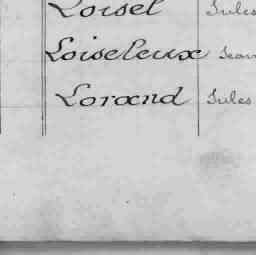 Loisel Jules
Loiseleux Jean
Lorand Jules